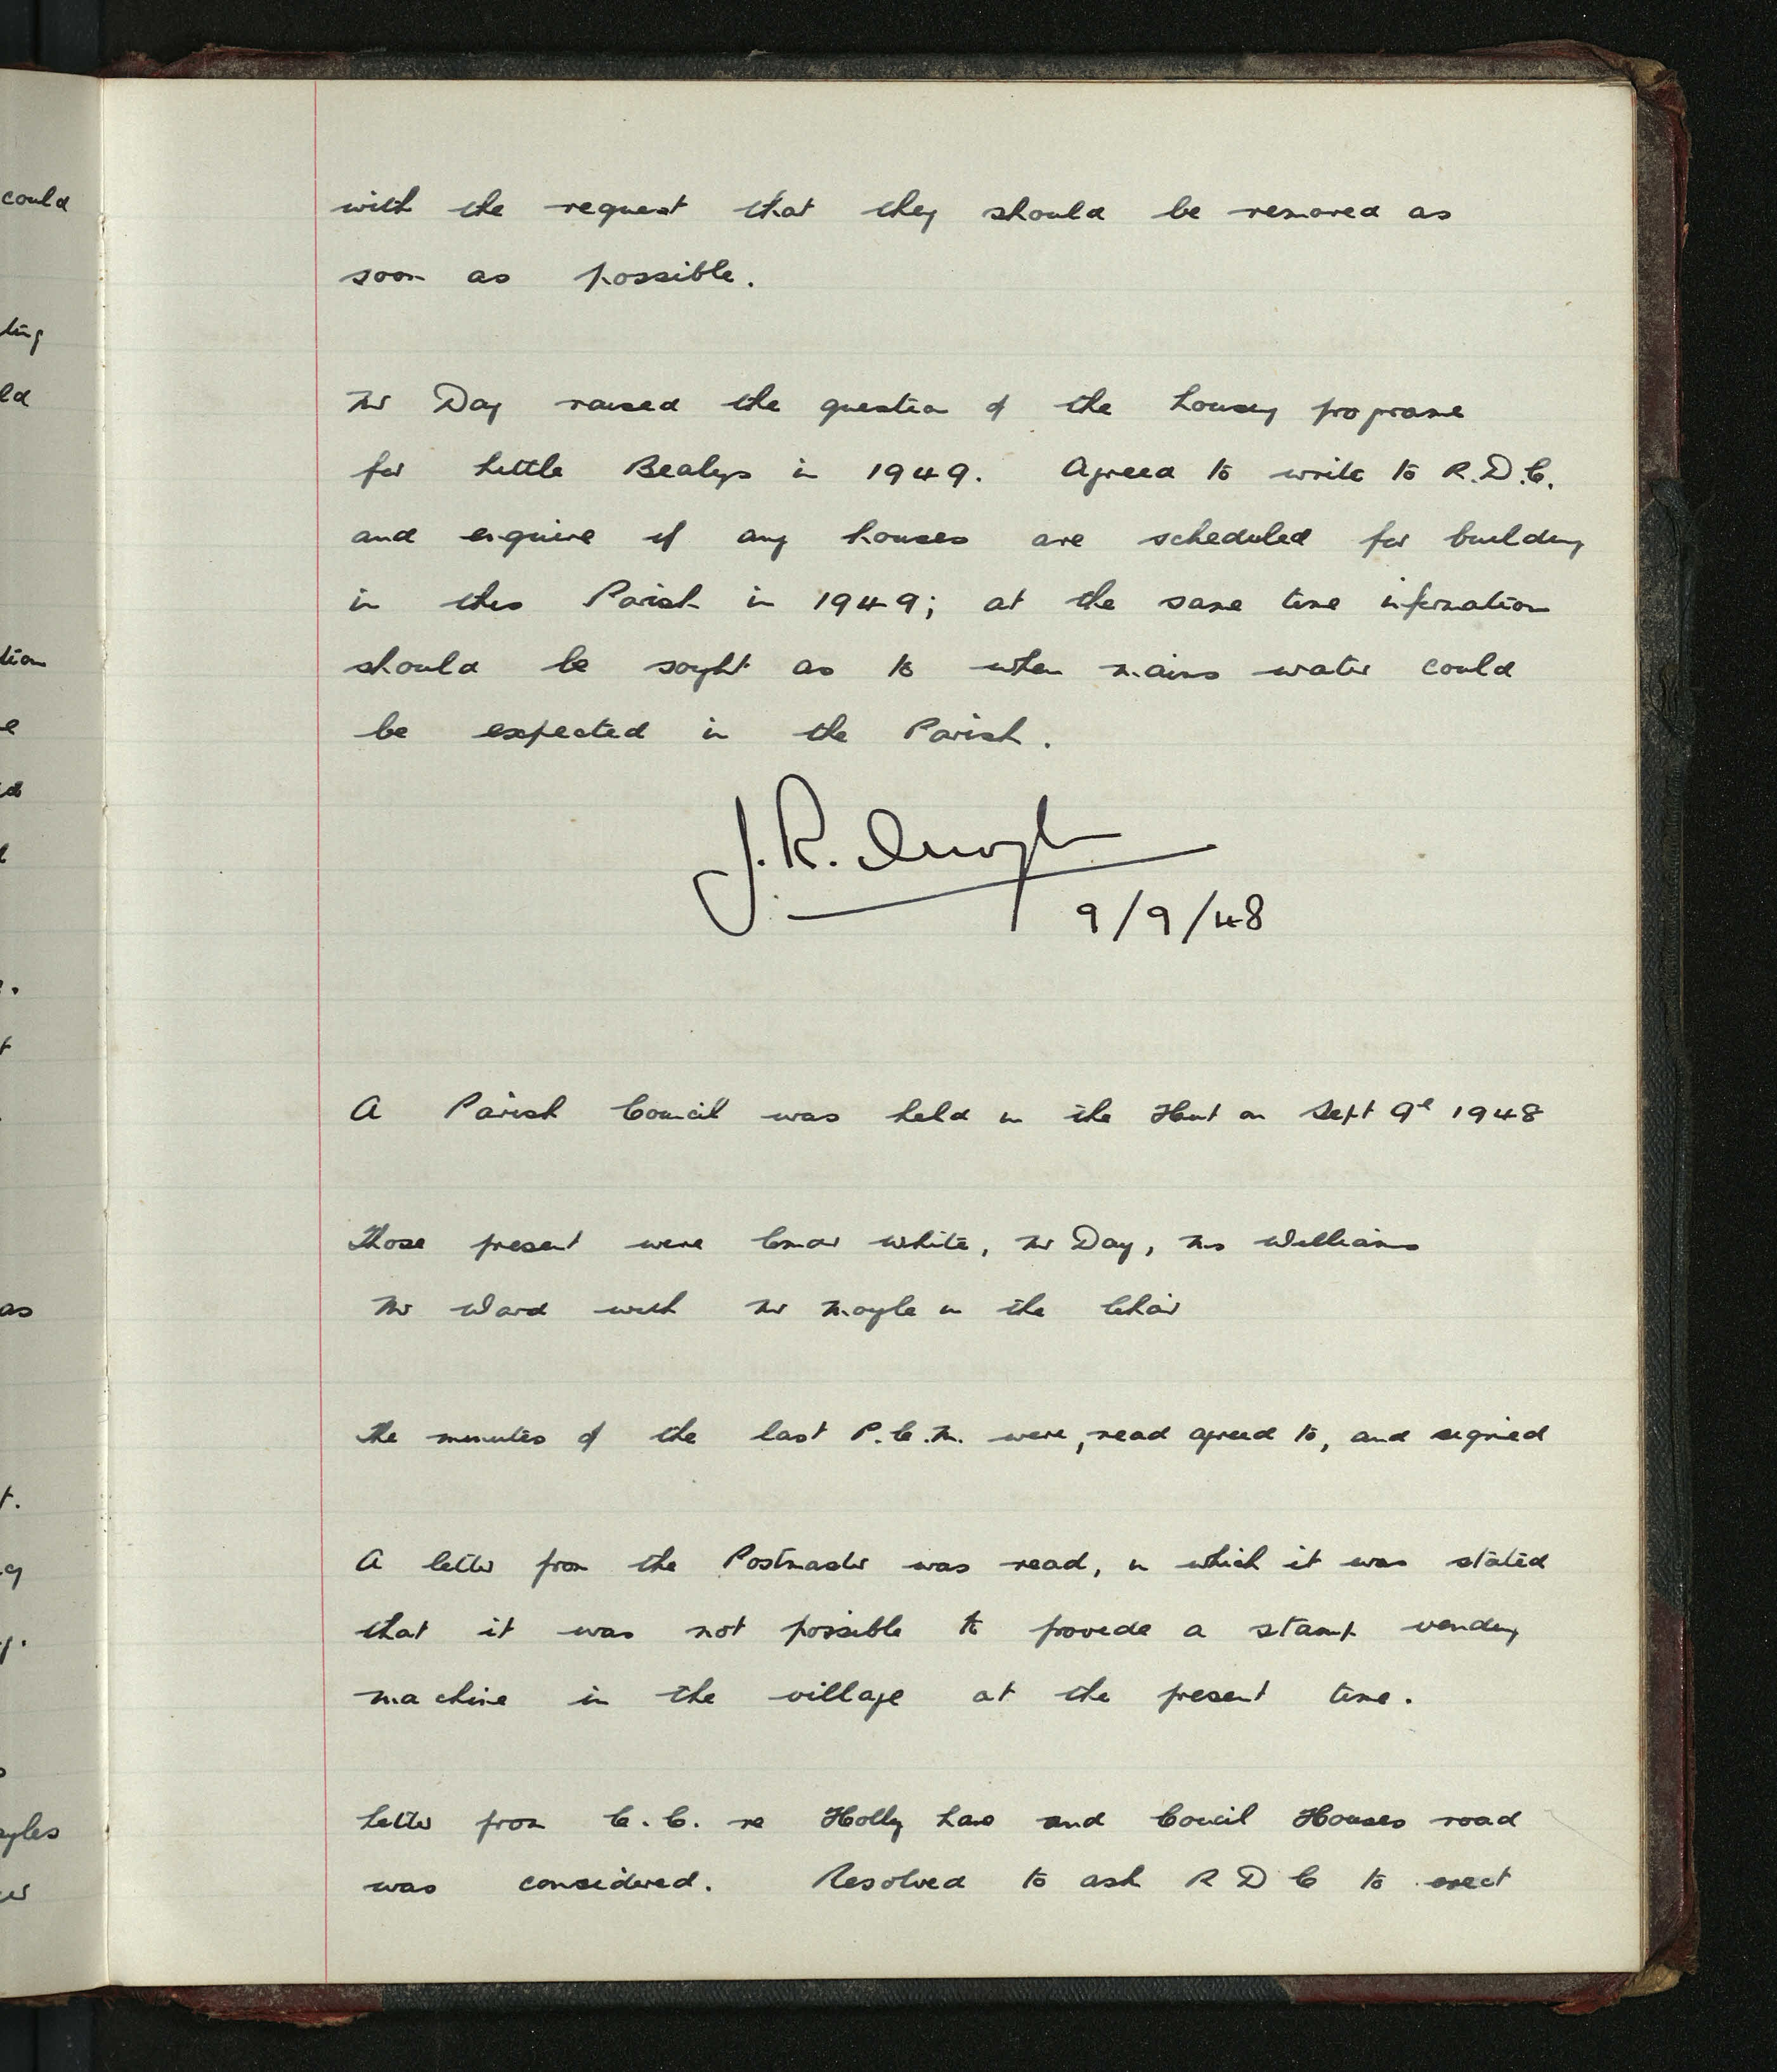 with the request that they should be removed as
soon as possible.
Mr Day raised the question of the housing programe
for Little Bealings in 1949. Agreed to write to R.D.C.
and enquire if any houses are scheduled for building
in this Parish in 1949; at the same time information
should be sought as to when mains water could
be expected in the Parish.
J. R.
9/9/48
A Parish Council was held in the Hut on Sept 9th 1948
Those present were Cmdr White, Mr Day, Mrs Williams
Mr Ward with Mr Moyle in the Chair
The minutes of the last P.C.M. were, read agreed to, and signed
A letter from the Postmaster was read, in which it was stated
that it was not possible to provide a stamp vending
machine in the village at the present time.
Letter from C.C. re Holly Lane and Council Houses road
was considered. Resolved to ask R D C to erect
could
ld
tion
e
as